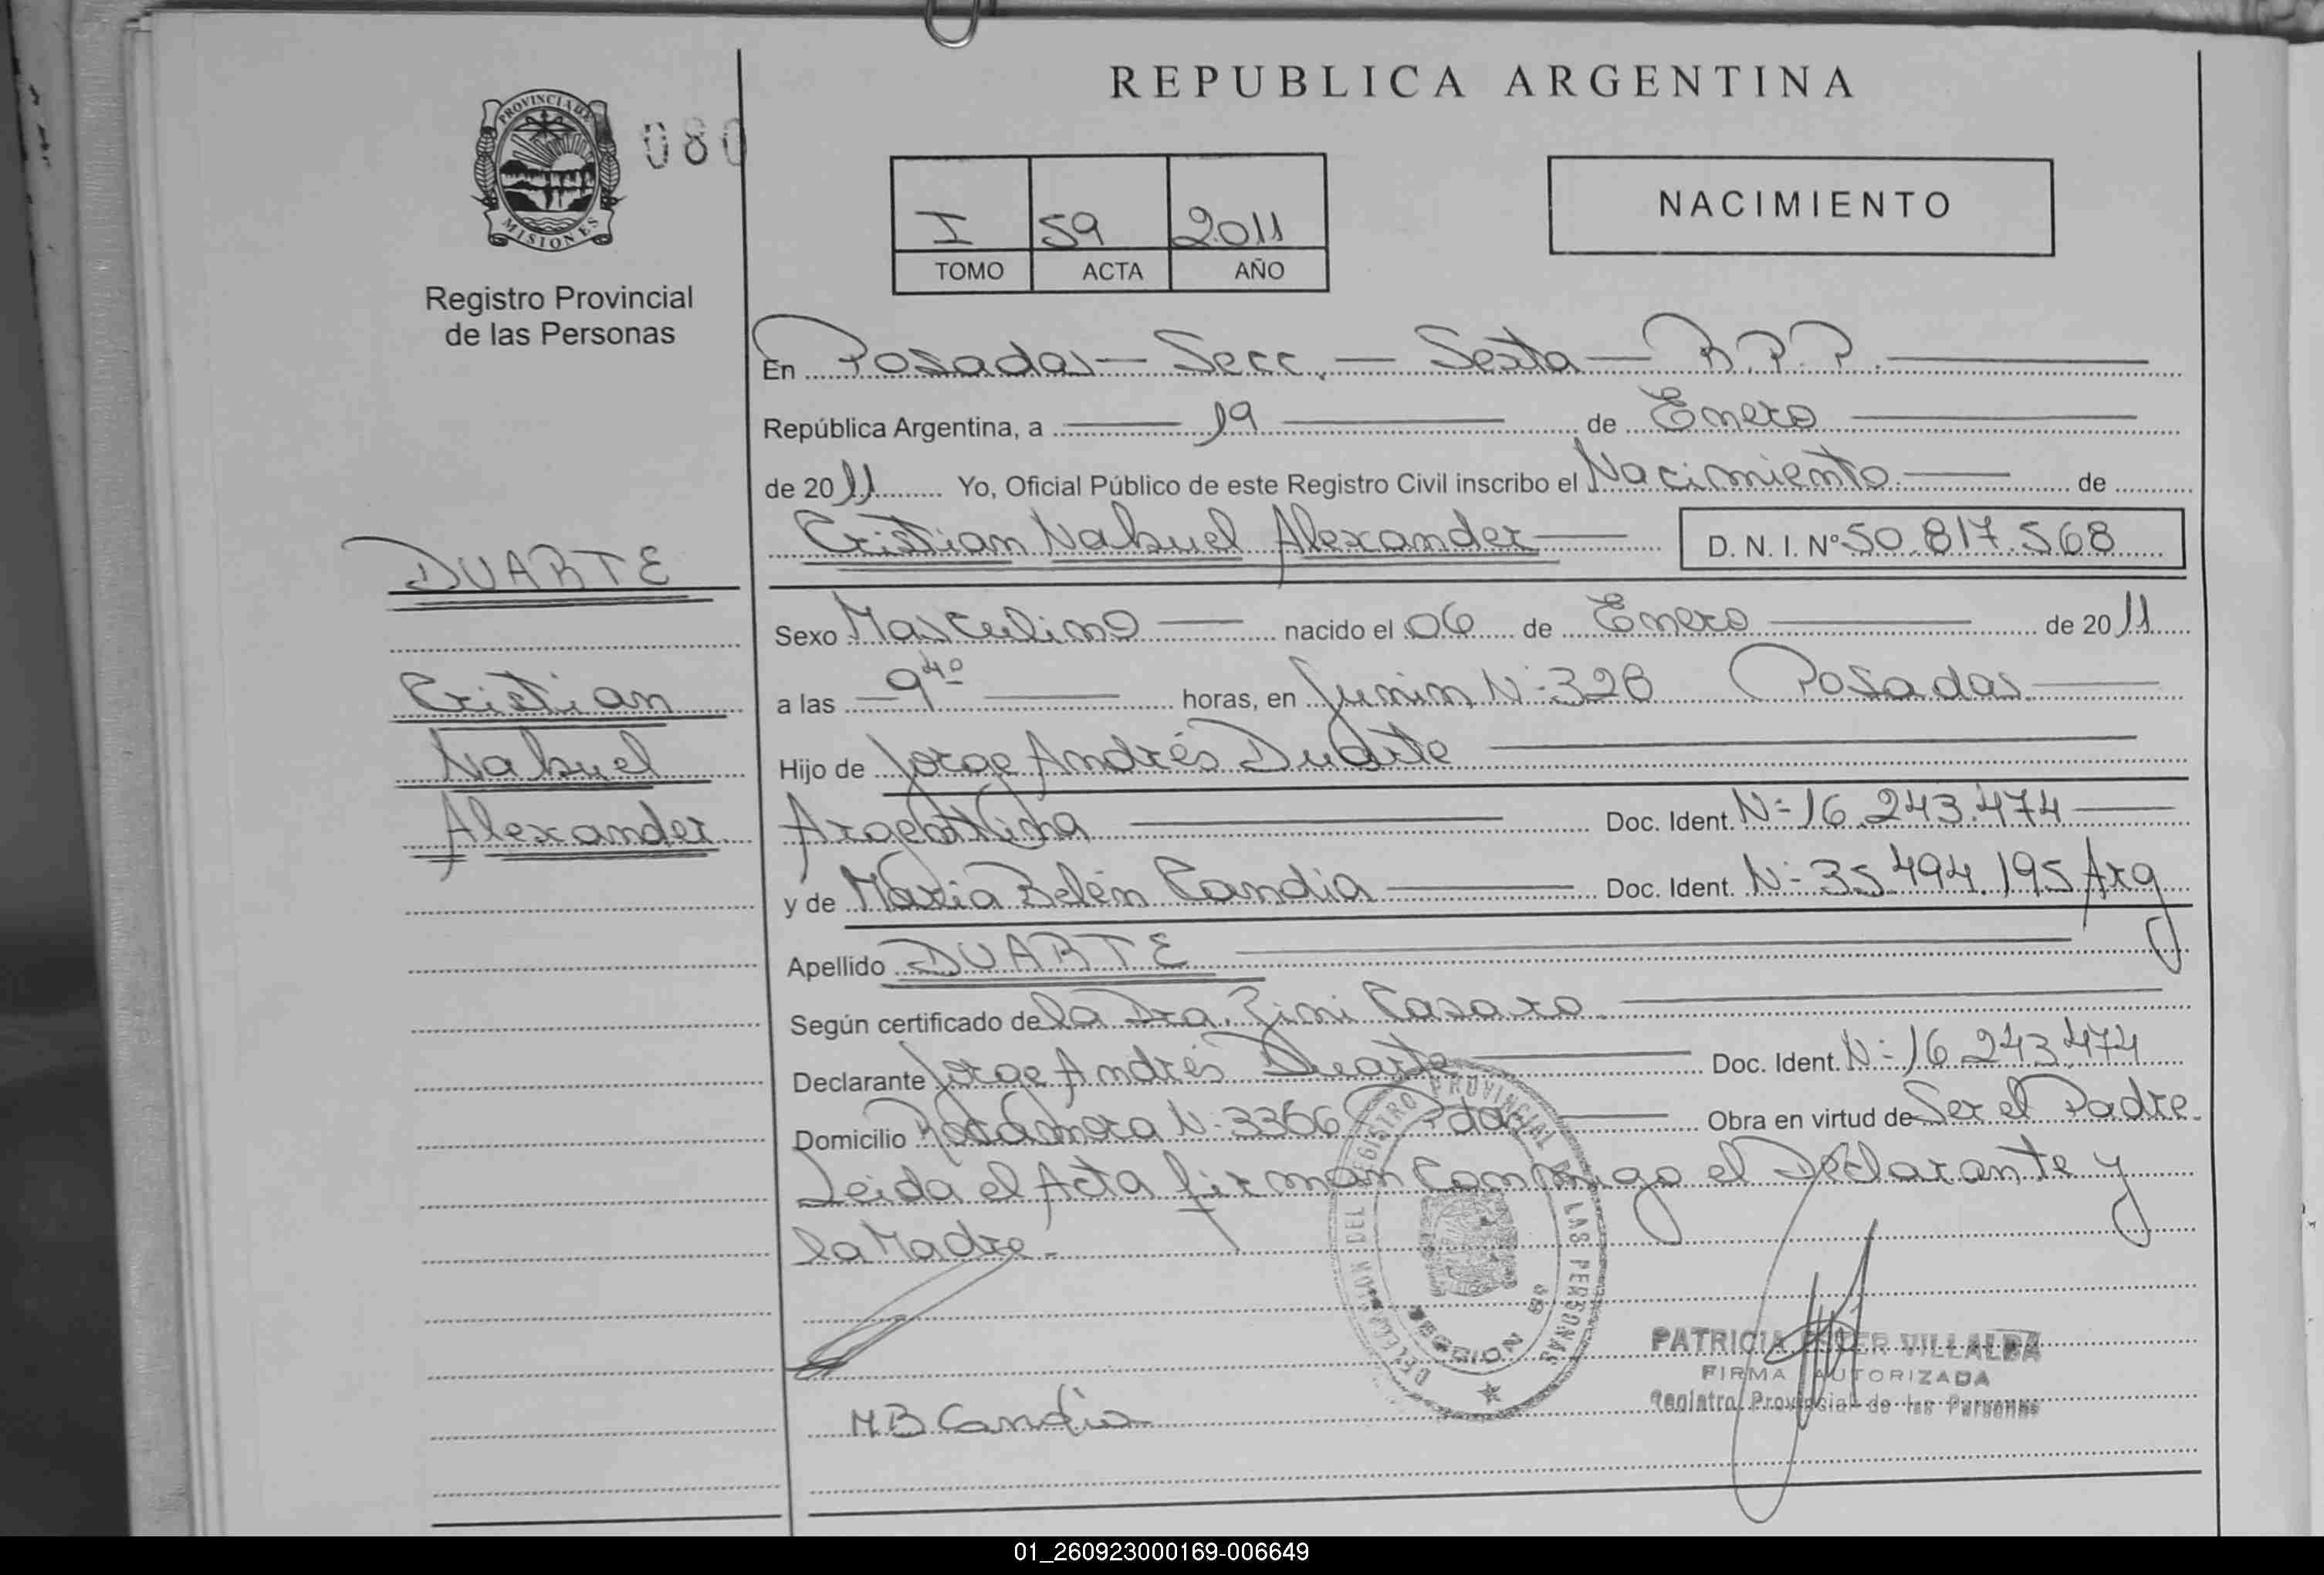 PROVINCIA DE
MISIONES
080
Registro Provincial
de las Personas
REPUBLICA ARGENTINA
I 59 2011
TOMO ACTA AÑO
NACIMIENTO
En Posadas - Secc. - Sexta - R.P.P.
República Argentina, a 19 de Enero
de 2011 Yo, Oficial Público de este Registro Civil inscribo el Nacimiento de
Cristian Nahuel Alexander D. N. I. Nº 50.817.568
DUARTE
Cristian
Nahuel
Alexander
Sexo Masculino nacido el 06 de Enero de 2011
a las 9 40 horas, en Junin N: 328 Posadas
Hijo de Jorge Andrés Duarte
Argentina Doc. Ident. N= 16.243.474
y de Maria Belén Candia Doc. Ident. N: 35.494.195 Arg
Apellido DUARTE
Según certificado de la Dra. Casaro
Declarante Jorge Andrés Duarte Doc. Ident. N: 16.243.474
Domicilio N: 3366 Pdas Obra en virtud de Ser el Padre.
Leida el Acta firman Conmigo el Declarante y
la Madre.-
DELEGACION DEL REGISTRO PROVINCIAL DE LAS PERSONAS
SECCION 6º
MB Candia
PATRICIA VILLALBA
FIRMA AUTORIZADA
Registro Provincial de las Personas
01_260923000169-006649